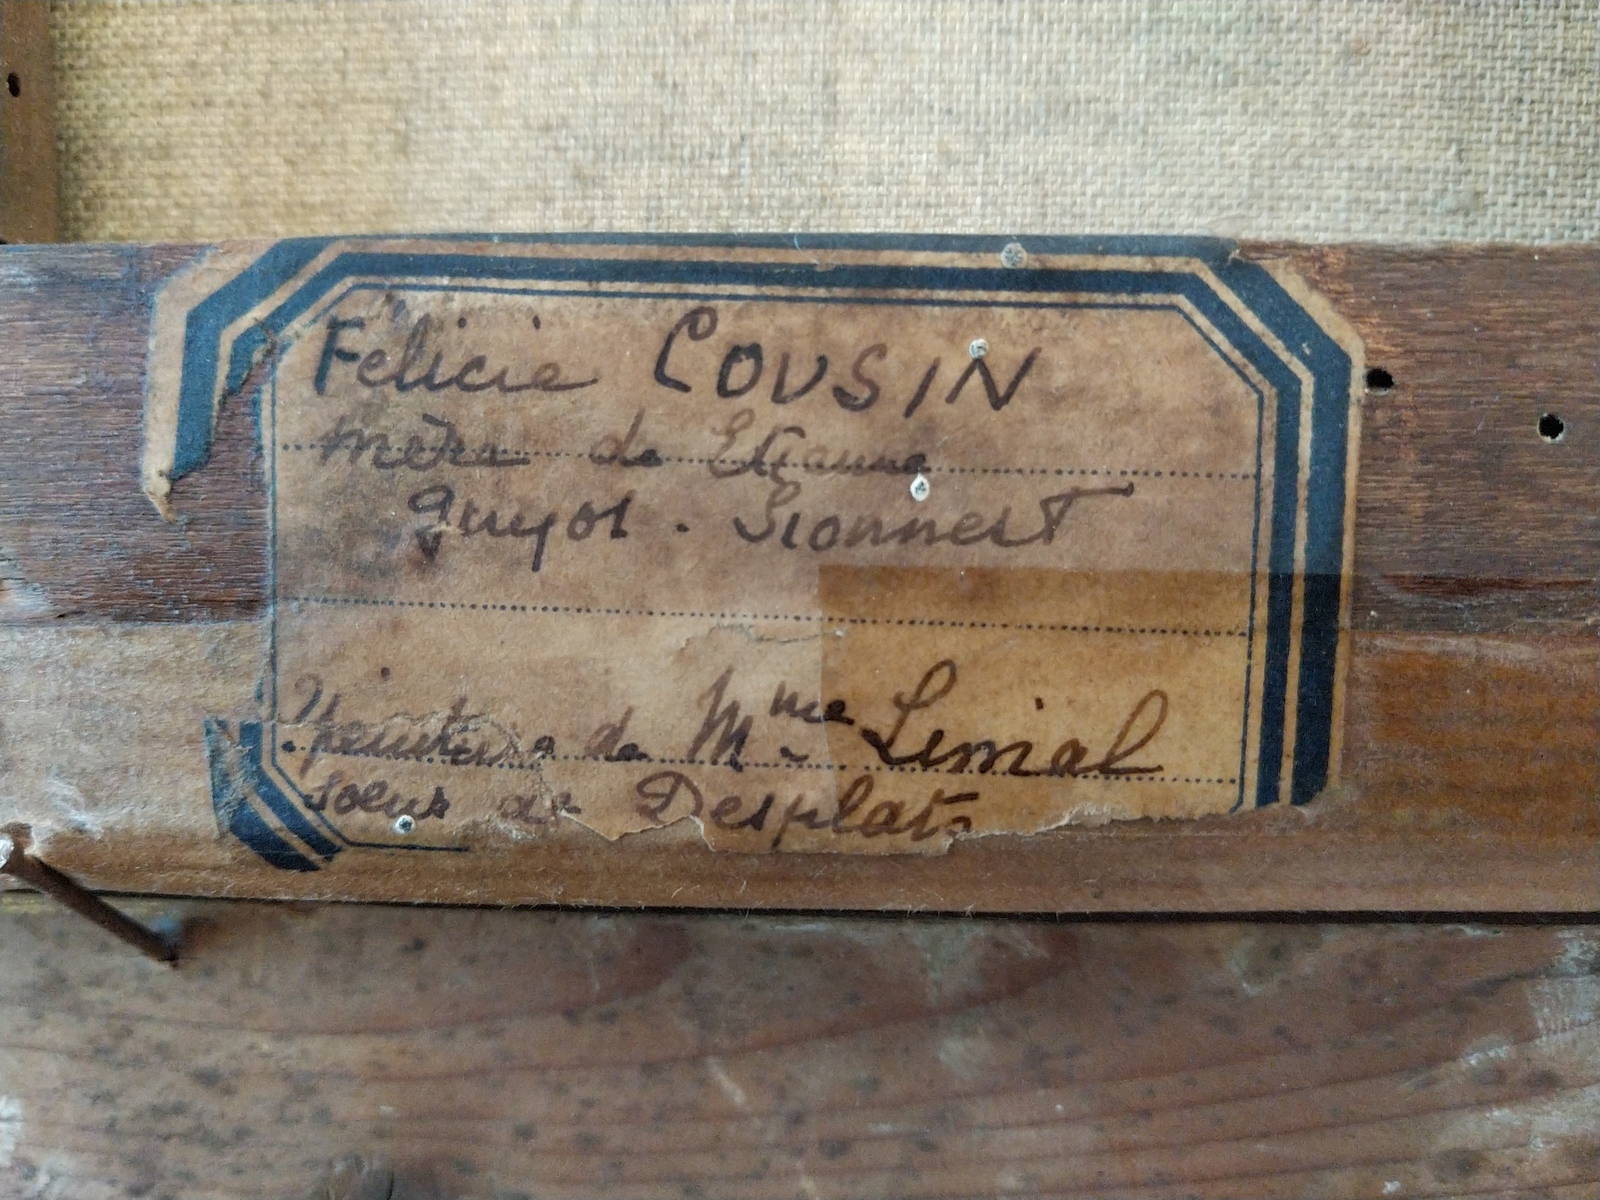 Félicie COUSIN
mère de Etienne
guyot. Sionnest
peinture de Mme Linial
soeur de Desplats